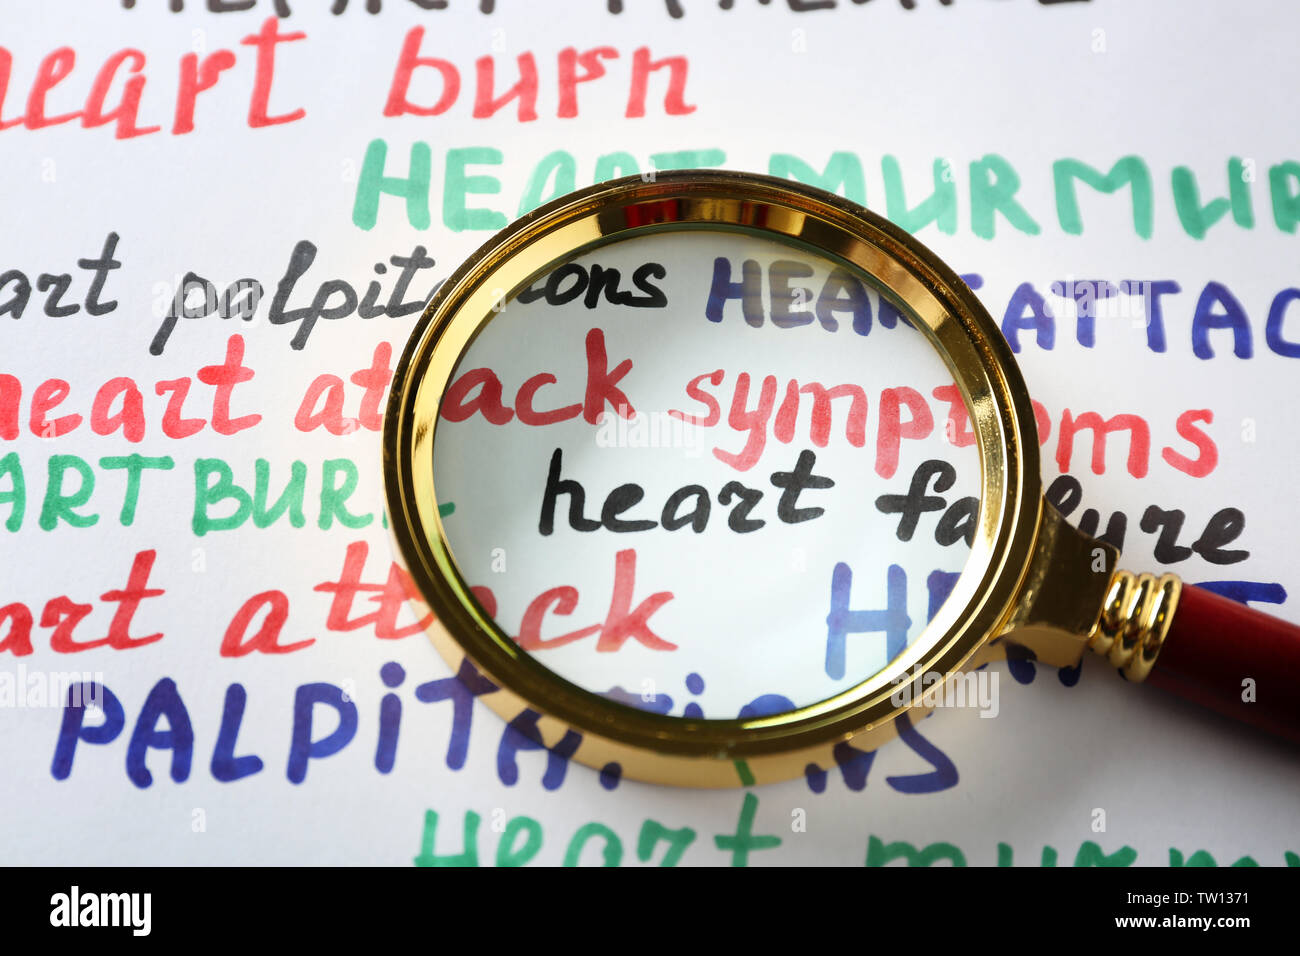 heart burn
HEART MURMUR
art palpitations HEART ATTAC
heart attack symptoms
ART BURN heart failure
art attack HEART
PALPITATIONS
Heart murmu
alamy
Image ID: TW1371
www.alamy.com